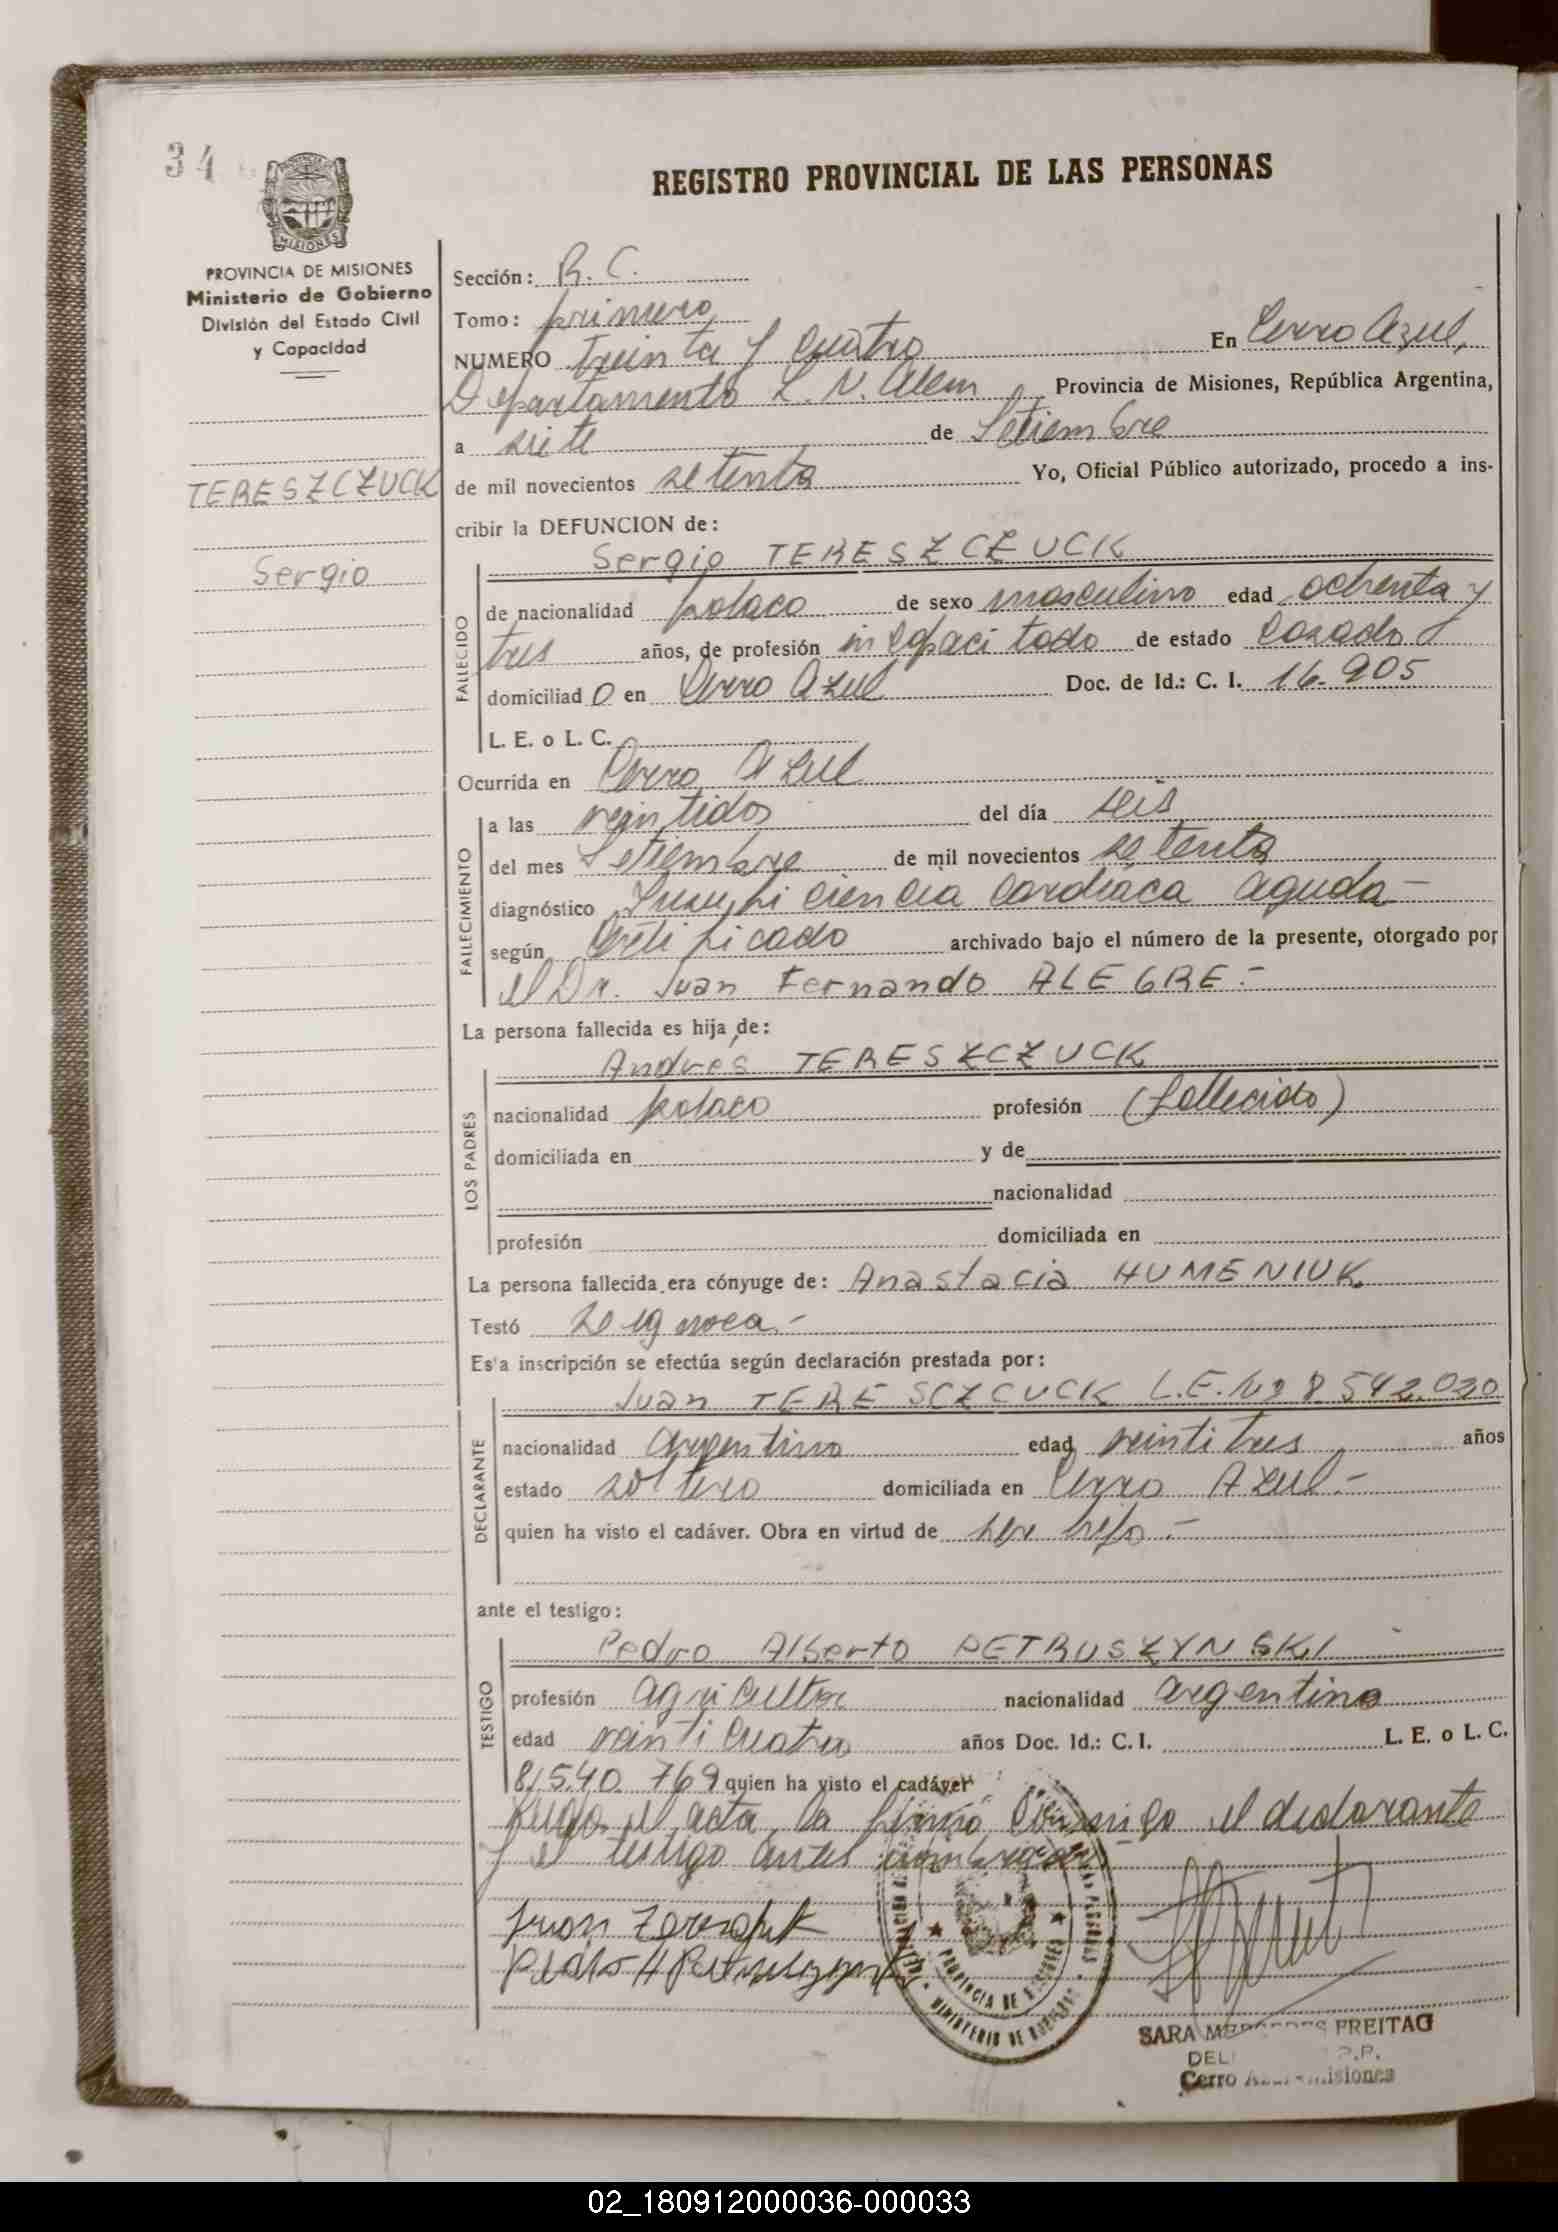 34
PROVINCIA DE
MISIONES
REGISTRO PROVINCIAL DE LAS PERSONAS
PROVINCIA DE MISIONES
Ministerio de Gobierno
División del Estado Civil
y Capacidad
TERESZCZUCK
Sergio
Sección: R. C.
Tomo: primero
NUMERO treinta y cuatro En Cerro Azul,
Departamento L. N. Alem Provincia de Misiones, República Argentina,
a siete de Setiembre
de mil novecientos setenta Yo, Oficial Público autorizado, procedo a ins-
cribir la DEFUNCION de:
Sergio TERESZCZUCK
FALLECIDO
de nacionalidad polaco de sexo masculino edad ochenta y
tres años, de profesión incapacitado de estado casado
domiciliado en Cerro Azul Doc. de Id.: C. I. 16.905
L. E. o L. C.
Ocurrida en Cerro Azul
FALLECIMIENTO
a las veintidos del día seis
del mes Setiembre de mil novecientos setenta
diagnóstico Insuficiencia Cardíaca aguda-
según Certificado archivado bajo el número de la presente, otorgado por
el Dr. Juan Fernando ALEGRE.-
La persona fallecida es hija de:
Andrés TERESZCZUCK
LOS PADRES
nacionalidad polaco profesión (fallecido)
domiciliada en y de
nacionalidad
profesión domiciliada en
La persona fallecida era cónyuge de: Anastacia HUMENIUK
Testó se ignora.-
Es'a inscripción se efectúa según declaración prestada por:
Juan TERESCZCUCK L.E. Nº 8.542.020
DECLARANTE
nacionalidad argentino edad veintitres años
estado soltero domiciliada en Cerro Azul.-
quien ha visto el cadáver. Obra en virtud de ser hijo.-
ante el testigo:
Pedro Alberto PETRUSZYNSKI
TESTIGO
profesión agricultor nacionalidad argentino
edad veinticuatro años Doc. Id.: C. I. L. E. o L. C.
8.540.769 quien ha visto el cadáver
el acta, la firmó conmigo el declarante
y el testigo antes nombrado
Juan
Pedro A
PROVINCIA DE MISIONES
MINISTERIO DE
SARA MERCEDES FREITAG
Cerro Azul - Misiones
02_180912000036-000033